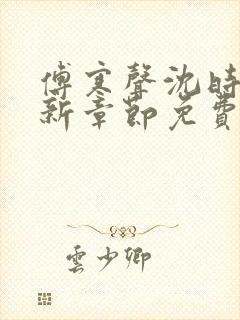 傅寒聲沈時
新章節免費
雲少卿